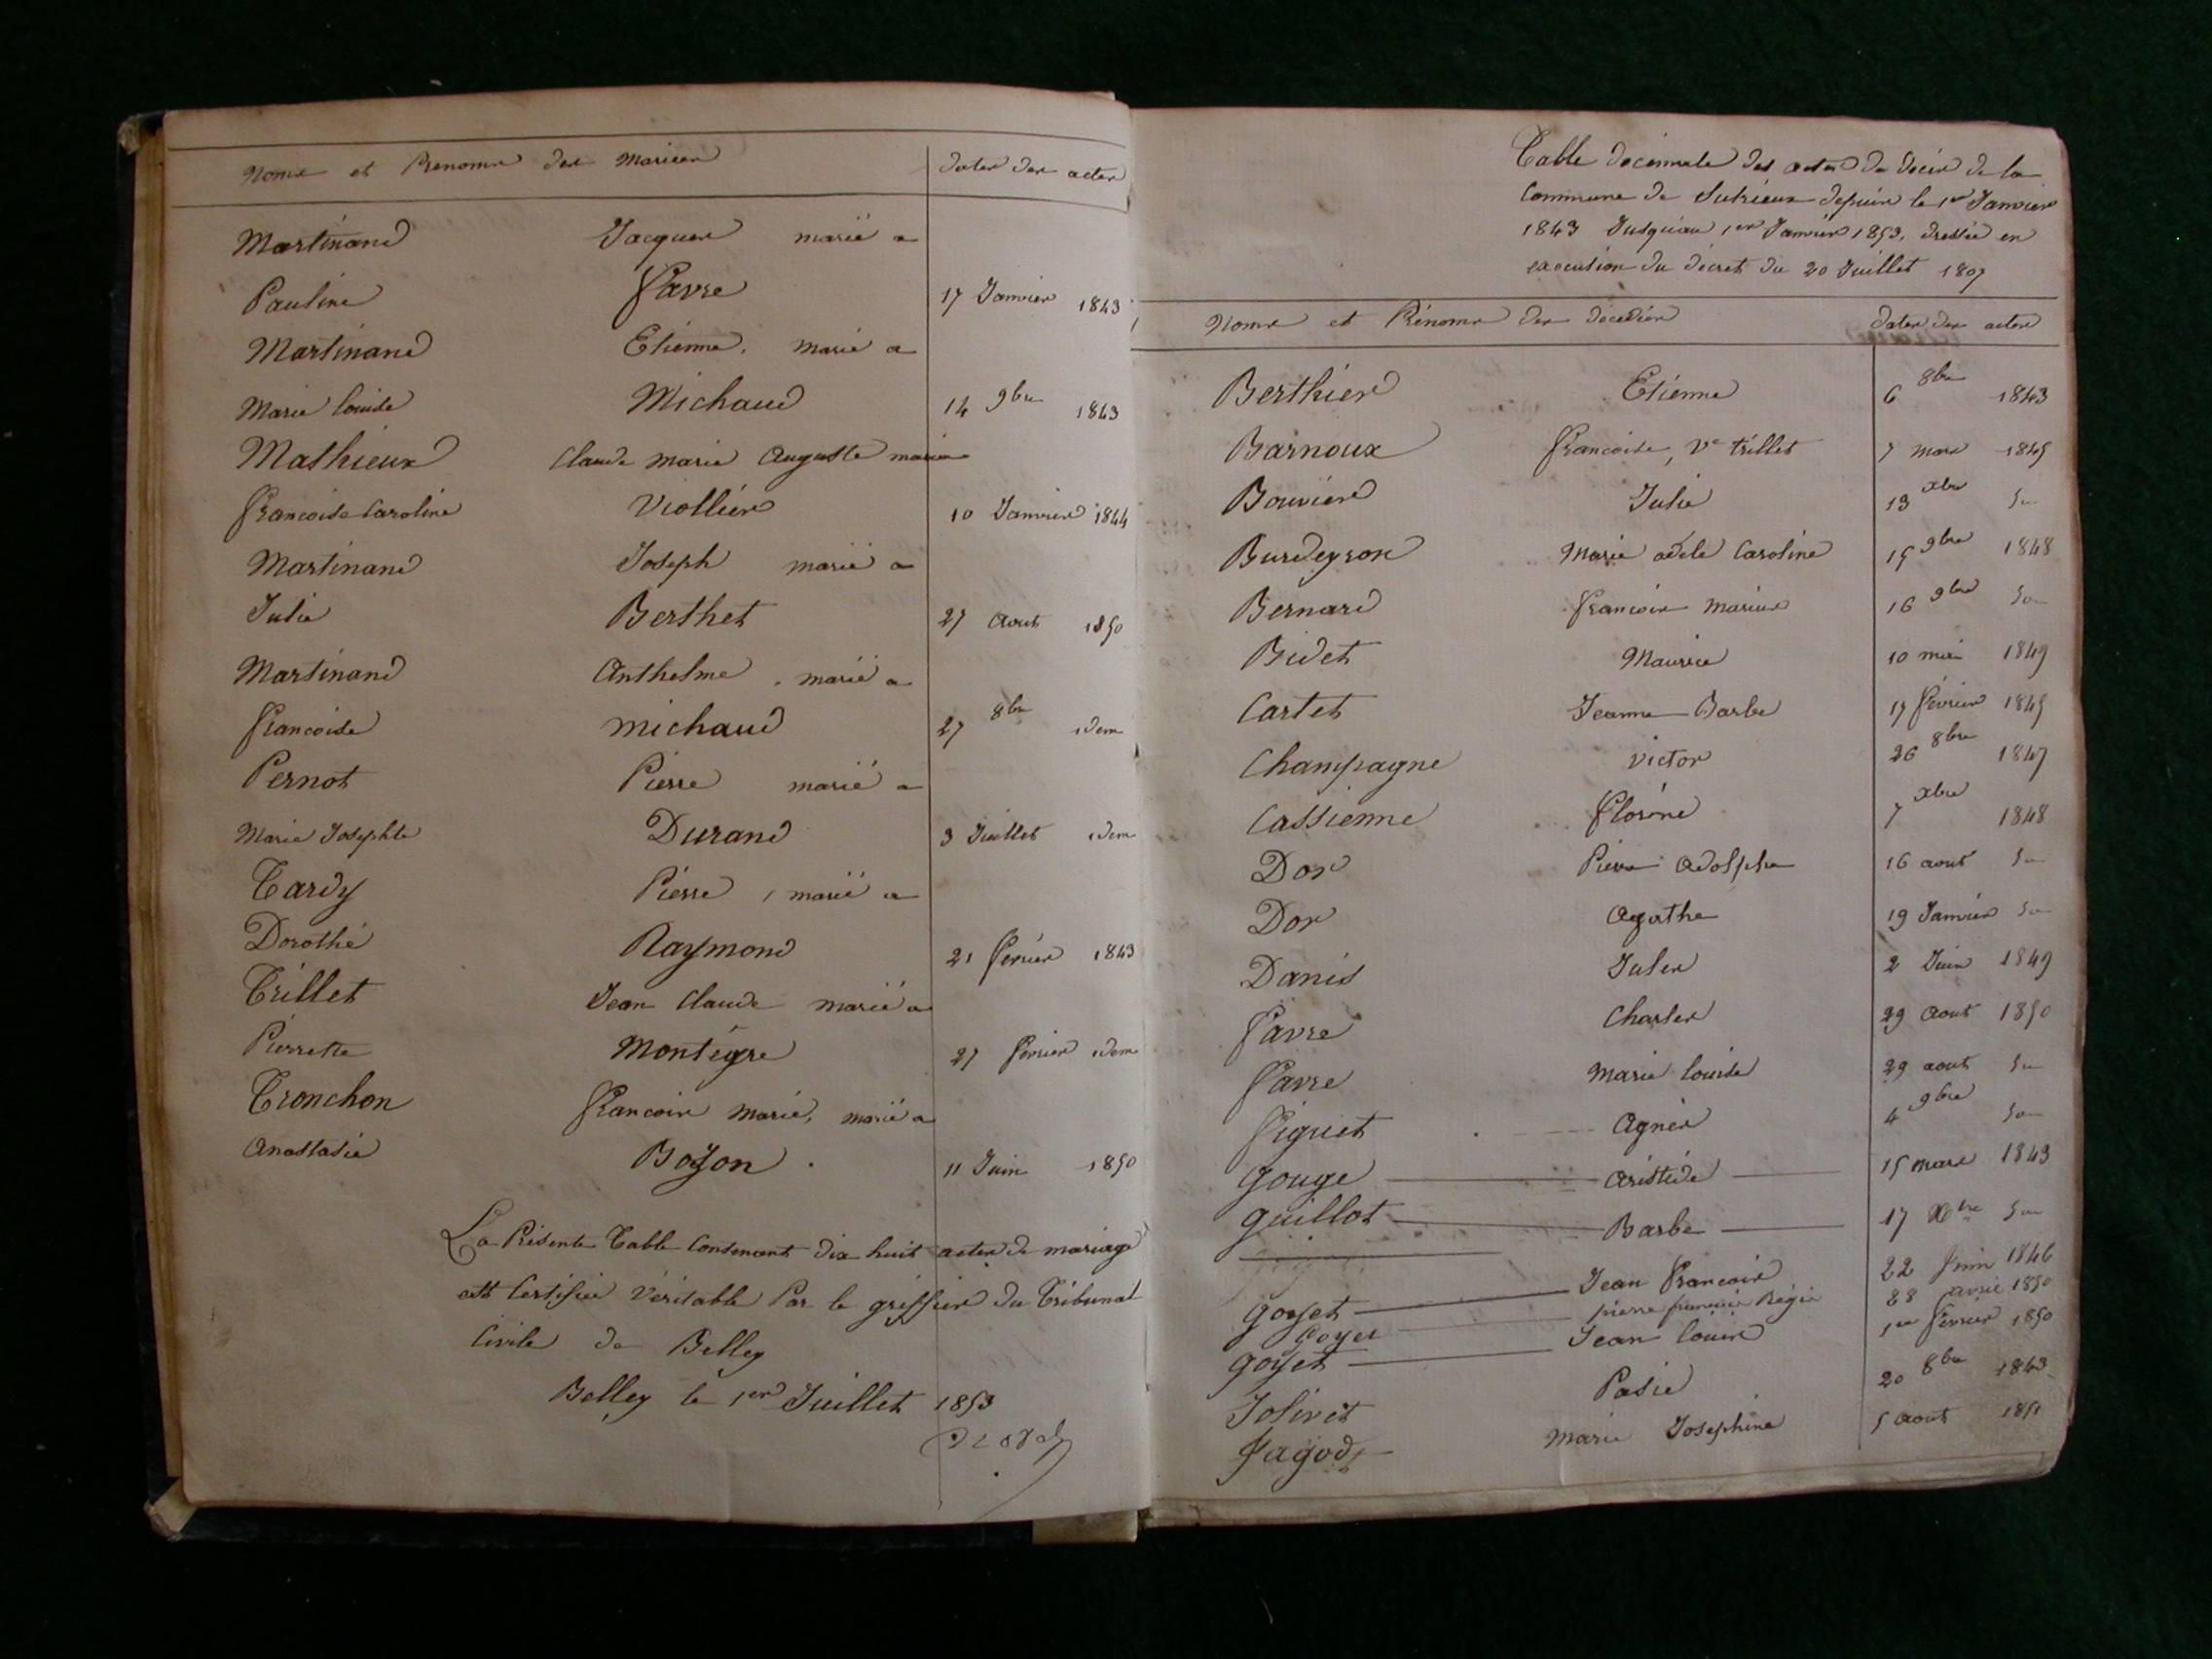 Noms et Prenoms des Mariés dates des actes
Martinand Jacques marié a
Pauline Favre 17 Janvier 1843
Martinand Etienne. marié a
Marie louise Michaud 14 9bre 1843
Mathieux Claude marie Auguste marié a
francoise Caroline Viollier 10 Janvier 1844
Martinand Joseph marié a
Julie Berthet 27 Aout 1850
Martinand Anthelme. marié a
francoise michaud 27 8bre idem
Pernot Pierre marié a
Marie Josephte Durand 3 Juillet idem
Tardy Pierre, marié a
Dorothé Raymond 21 fevrier 1843
Trillet Jean Claude marié a
Pierrette Montégre 27 fevrier idem
Tronchon francois Marie, marié a
Anastasie Boyon. 11 Juin 1850
La Présente Table Contenant dix huit actes de mariage
est Certifiée Véritable Par le greffier du Tribunal
Civile de Belley
Belley le 1er Juillet 1853
Table decennale des actes de décès de la
Commune de Sutrieux depuis le 1er Janvier
1843 Jusqu'au 1er Janvier 1853, dressée en
execution du décret du 20 Juillet 1807
Noms et Prénoms des decedés dates des actes
Berthier Etienne 6 8bre 1843
Barnoux francoise, Ve trillet 7 mars 1845
Bouvier Julie 13 xbre Do
Burdeyron Marie adele Caroline 15 9bre 1848
Bernard francois marius 16 9bre Do
Bidet Maurice 10 mai 1849
Cartet Jeanne Barbe 17 février 1845
Champagne victor 26 8bre 1847
Cassienne florine 7 xbre 1848
Dor Pierre Adolphe 16 aout Do
Dor Agathe 19 Janvier Do
Danis Jules 2 Juin 1849
Favre Charles 29 aout 1850
Favre Marie louise 29 aout Do
Figuet Agnés 4 9bre Do
Gouge Aristide 15 mars 1843
Guillot Barbe 17 Xbre Do
Goyet Jean francois 22 Juin 1846
Goyet pierre francois Régis 28 avril 1850
Goyet Jean louis 1er fevrier 1850
Jolivet Pasie 20 8bre 1843
Jagod Marie Josephine 5 aout 1851